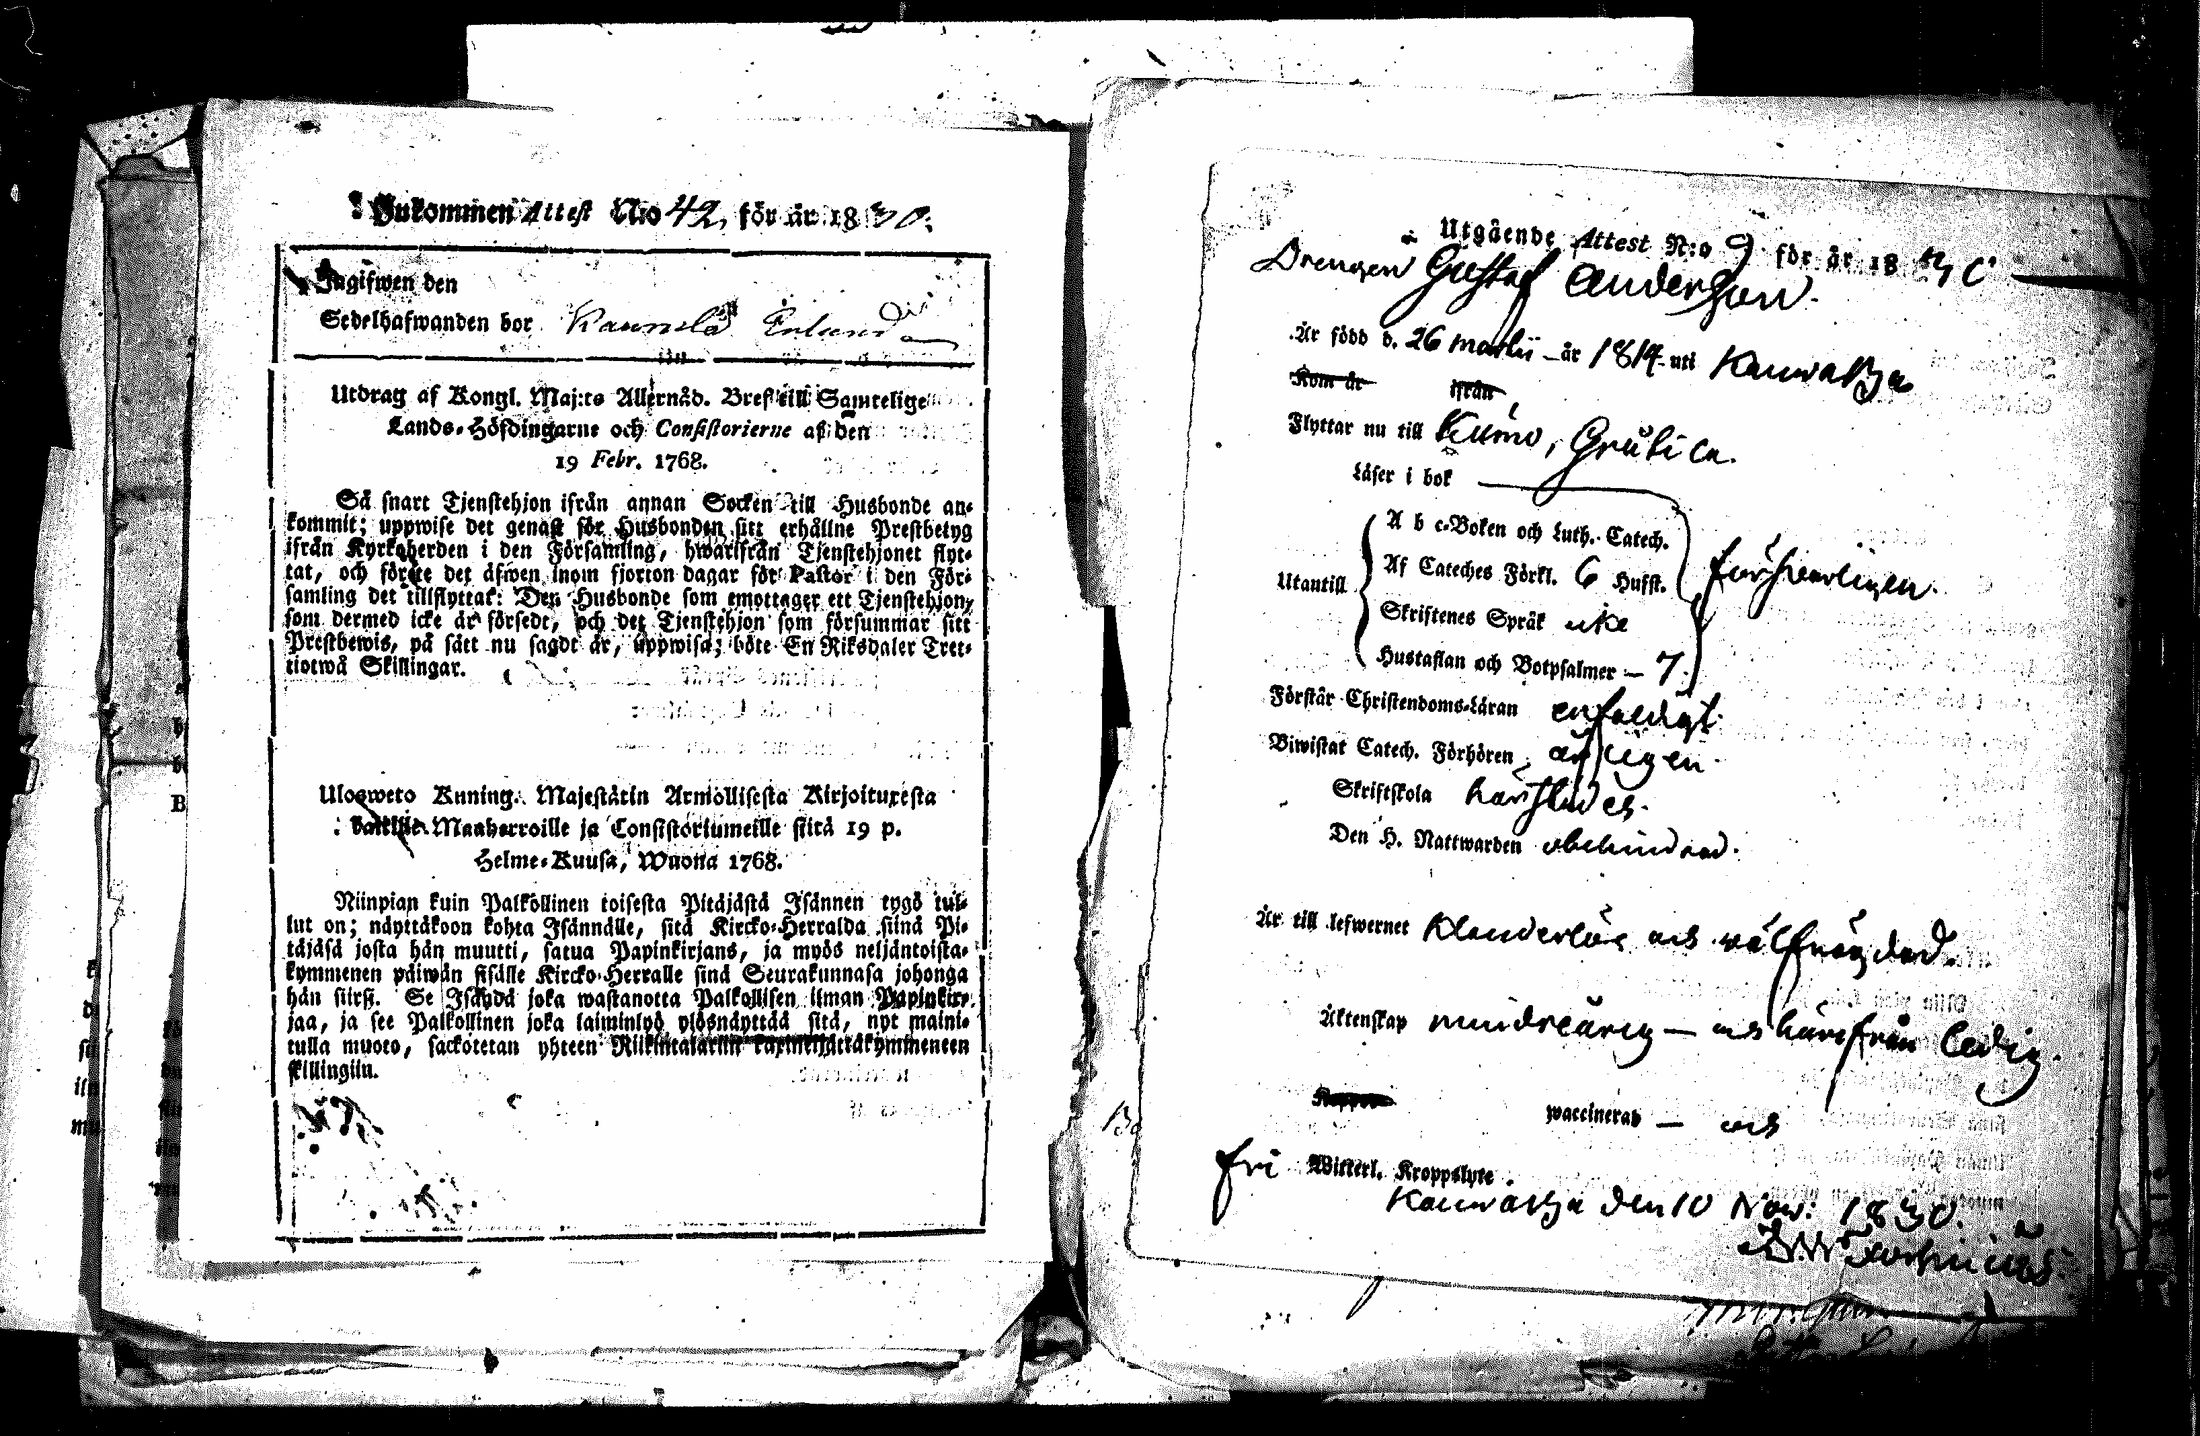 Inkommen Attest N:o 42, för år 1830.
Ingifwen den
Sedelhafwanden bor Kaunela Enlund
Utdrag af Kongl. Maj:ts Allernåd. Bref till Samtelige
Lands-Höfdingarne och Consistorierne af den
19 Febr. 1768.
Så snart Tjenstehjon ifrån annan Socken till Husbonde an-
kommit; uppwise det genast för Husbonden sitt erhållne Prestbetyg
ifrån Kyrkoherden i den Församling, hwarifrån Tjenstehjonet flyt-
tat, och förete det äfwen inom fjorton dagar för Pastor i den För-
samling det tillflyttat: Den Husbonde som emottager ett Tjenstehjon,
som dermed icke är försedt, och det Tjenstehjon som försummar sitt
Prestbewis, på sätt nu sagdt är, uppwisa; böte En Riksdaler Tret-
tiotwå Skillingar.
Ulosweto Kuning. Majestätin Armollisesta Kirjoituxesta
kaikille Maaherroille ja Consistoriumeille siitä 19 p.
Helme-Kuusa, Wuona 1768.
Niinpian kuin Palkollinen toisesta Pitäjästä Isännen tygö tul-
lut on; näyttäkoon kohta Isännälle, sitä Kircko-Herralda siinä Pi-
täjäsä josta hän muutti, satua Papinkirjans, ja myös neljäntoista-
kymmenen päiwän sisälle Kircko-Herralle sinä Seurakunnasa johonga
hän siirsi. Se Isändä joka wastanotta Palkollisen ilman Papinkir-
jaa, ja see Palkollinen joka laiminlyö ylösnäyttää sitä, nyt maini-
tulla muoto, sackotetan yhteen Riikintalariin kaxineljättäkymmeneen
skillingiin.
Utgående Attest N:o 9 för år 1830
Drengen Gustaf Andersson.
Är född d. 26 Martii år 1814 uti Kauwatza
Kom år ifrån
Flyttar nu till Kumo, Gruti ca.
Läser i bok
A b c-Boken och Luth. Catech.
Af Cateches Förkl. 6 Hufst.
Utantill försvarligen.
Skriftenes Språk icke
Hustaflan och Botpsalmer — 7.
Förstår Christendoms-Läran enfaldigt.
Biwistat Catech. Förhören årligen.
Skriftskola härstädes.
Den H. Nattwarden obehindrad.
Är till lefwernet klanderlös och välfrägdad.
Äktenskap minderårig — och härifrån ledig.
waccinerad — och
fri Witterl. Kroppslyte.
Kauwatza den 10 Nov: 1830.